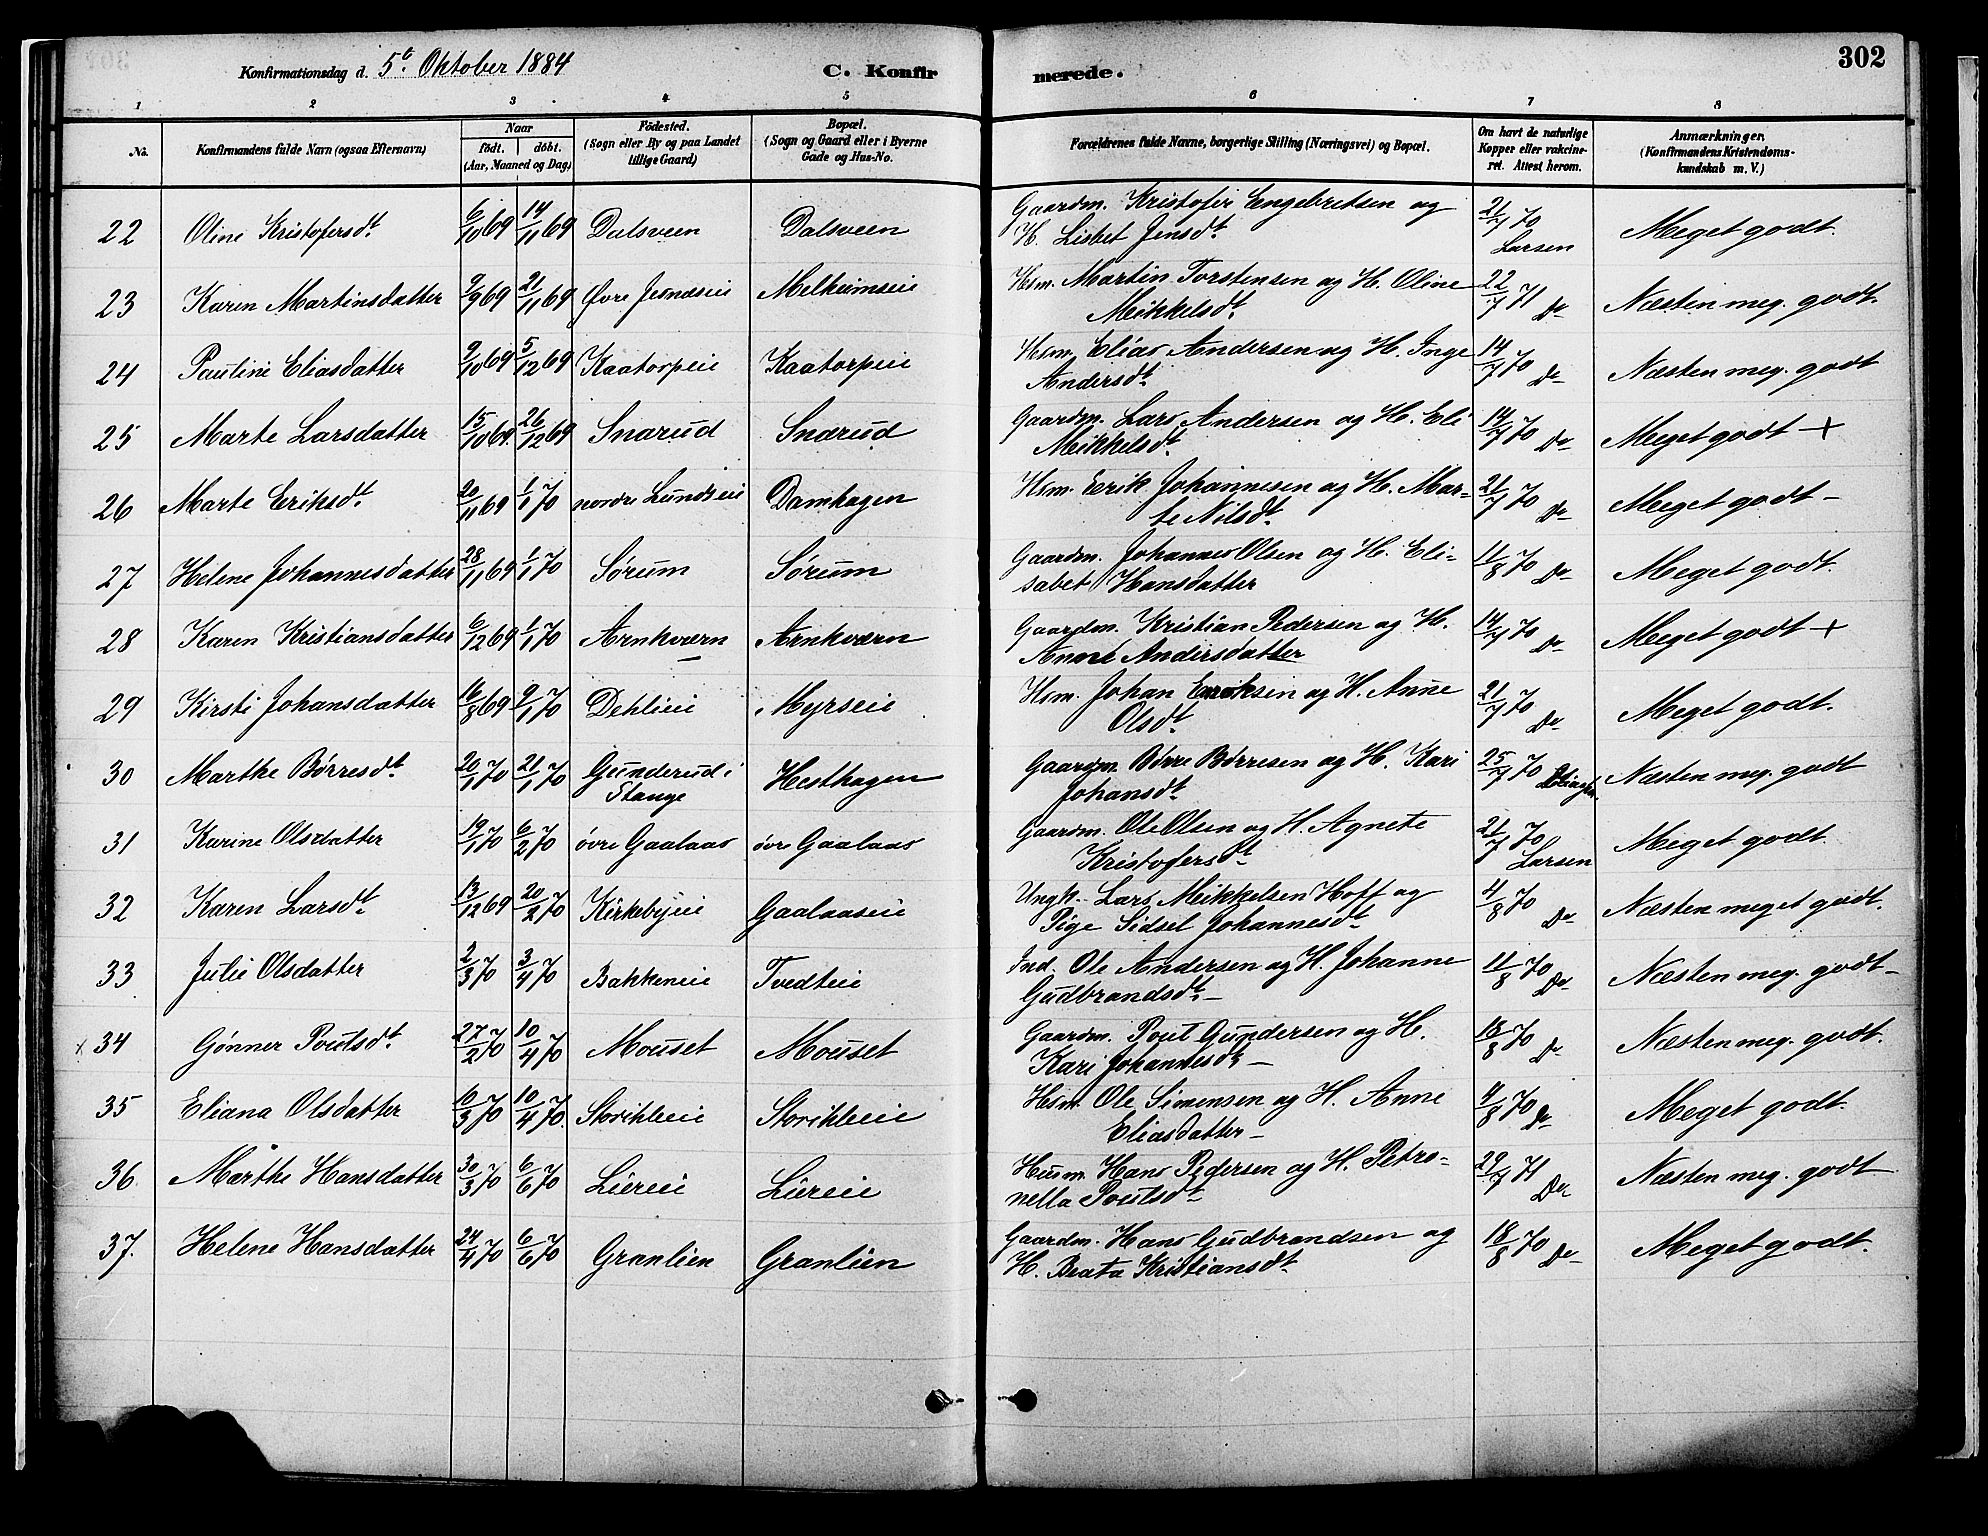 Konfirmationsdag d. 5te Oktober 1884 C. Konfirmerede. 302
1 2 3 4 5 6 7 8
No. Konfirmandens fulde Navn (ogsaa Efternavn) Naar födt. döbt. (Aar, Maaned og Dag) Födested. (Sogn eller By og paa Landet tillige Gaard) Bopæl. (Sogn og Gaard eller i Byerne Gade og Hus-No. Forældrenes fulde Navne, borgerlige Stilling (Næringsvei) og Bopæl. Om havt de naturlige Kopper eller vakcineret. Attest herom. Anmærkninger. (Konfirmandens Kristendomskundskab m. V.)
22 Oline Kristofersdt. 6/10 69 14/11 69 Dalsveen Dalsveen Gaardm. Kristofer Engebretsen og H. Lisbet Jensdt. 21/7 70 Larsen Meget godt.
23 Karen Martinsdatter 2/9 69 21/11 69 Øvre Jesnæseie Melheimseie Hsm. Martin Torstensen og H. Oline Mikkelsdt. 22/7 71 Do Næsten meg. godt.
24 Pauline Eliasdatter 9/10 69 5/12 69 Kaatorpeie Kaatorpeie Hsm. Elias Andersen og H. Inge Andersdt. 14/7 70 Do Næsten meg. godt
25 Marte Larsdatter 15/10 69 26/12 69 Snarud Snarud Gaardm. Lars Andersen og H. Eli Mikkelsdt. 14/7 70 Do Meget godt +
26 Marte Eriksdt. 20/11 69 1/1 70 nordre Lundseie Damhagen Hsm. Eerik Johannesen og H. Marte Nilsdt. 21/7 70 Do Meget godt –
27 Helene Johannesdatter 28/11 69 1/1 70 Sørum Sørum Gaardm. Johannes Olsen og H. Elisabet Hansdatter 11/8 70 Do Meget godt.
28 Karen Kristiansdatter 6/12 69 1/1 70 Arnkværn Arnkværn Gaardm. Kristian Pedersen og H. Anne Andersdatter 14/7 70 Do Meget godt +
29 Kirsti Johansdatter 16/8 69 9/1 70 Dehlieie Myrseie Hsm. Johan Eriksen og H. Anne Olsdt. 21/7 70 Do Meget godt.
30 Marthe Børresdt. 20/1 70 21/1 70 Gunderud i Stange Hesthagen Gaardm. Børre Børresen og H. Kari Johansdt. 25/7 70 Næsten meg. godt
31 Karine Olsdatter 19/1 70 6/2 70 øvre Gaalaas øvre Gaalaas Gaardm. Ole Olsen og H. Agnete Kristofersdt. 21/7 70 Larsen Meget godt.
32 Karen Larsdt. 13/12 69 20/2 70 Kirkebyeie Gaalaaseie Ungk. Lars Mikkelsen Hoff og Pige Sidsel Johannesdt. 4/8 70 Do Næsten meget godt.
33 Julie Olsdatter 2/3 70 3/4 70 Bakkeneie Tvedteie Ind. Ole Andersen og H. Johanne Gudbrandsdt. – 11/8 70 Do Næsten meg. godt –
x 34 Gønner Poulsdt. 27/2 70 10/4 70 Mouset Mouset Gaardm. Poul Gundersen og H. Kari Johannesdt. – 18/8 70 Do Næsten meg. godt.
35 Eliana Olsdatter 6/3 70 10/4 70. Storihleie Storihleie Hsm. Ole Simensen og H. Anne Eliasdatter – 4/8 70 Do Meget godt.
36. Marthe Hansdatter 30/3 70 6/6 70 Liereie Liereie Husm. Hans Pedersen og H. Petronella Poulsdt. 29/7 71 Do Næsten meg. godt
37. Helene Hansdatter 24/4 70 6/6 70 Granlien Granlien Gaardm. Hans Gudbrandsen og H. Beata Kristiansdt. 18/8 70 Do Meget godt.